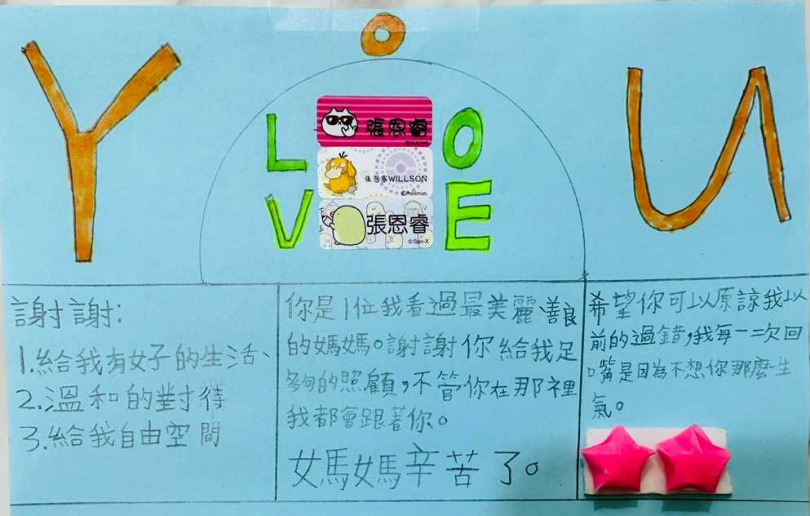 Y O U
L O
V E
張恩睿
張恩睿WILLSON
©Pokémon
張恩睿
©San-X
謝謝:
1.給我有好的生活、
2.溫和的對待
3.給我自由空間
你是1位我看過最美麗善良
的媽媽。謝謝你給我足
夠的照顧，不管你在那裡
我都會跟著你。
媽媽辛苦了。
希望你可以原諒我以
前的過錯，我每一次回
嘴是因為不想你那麼生
氣。